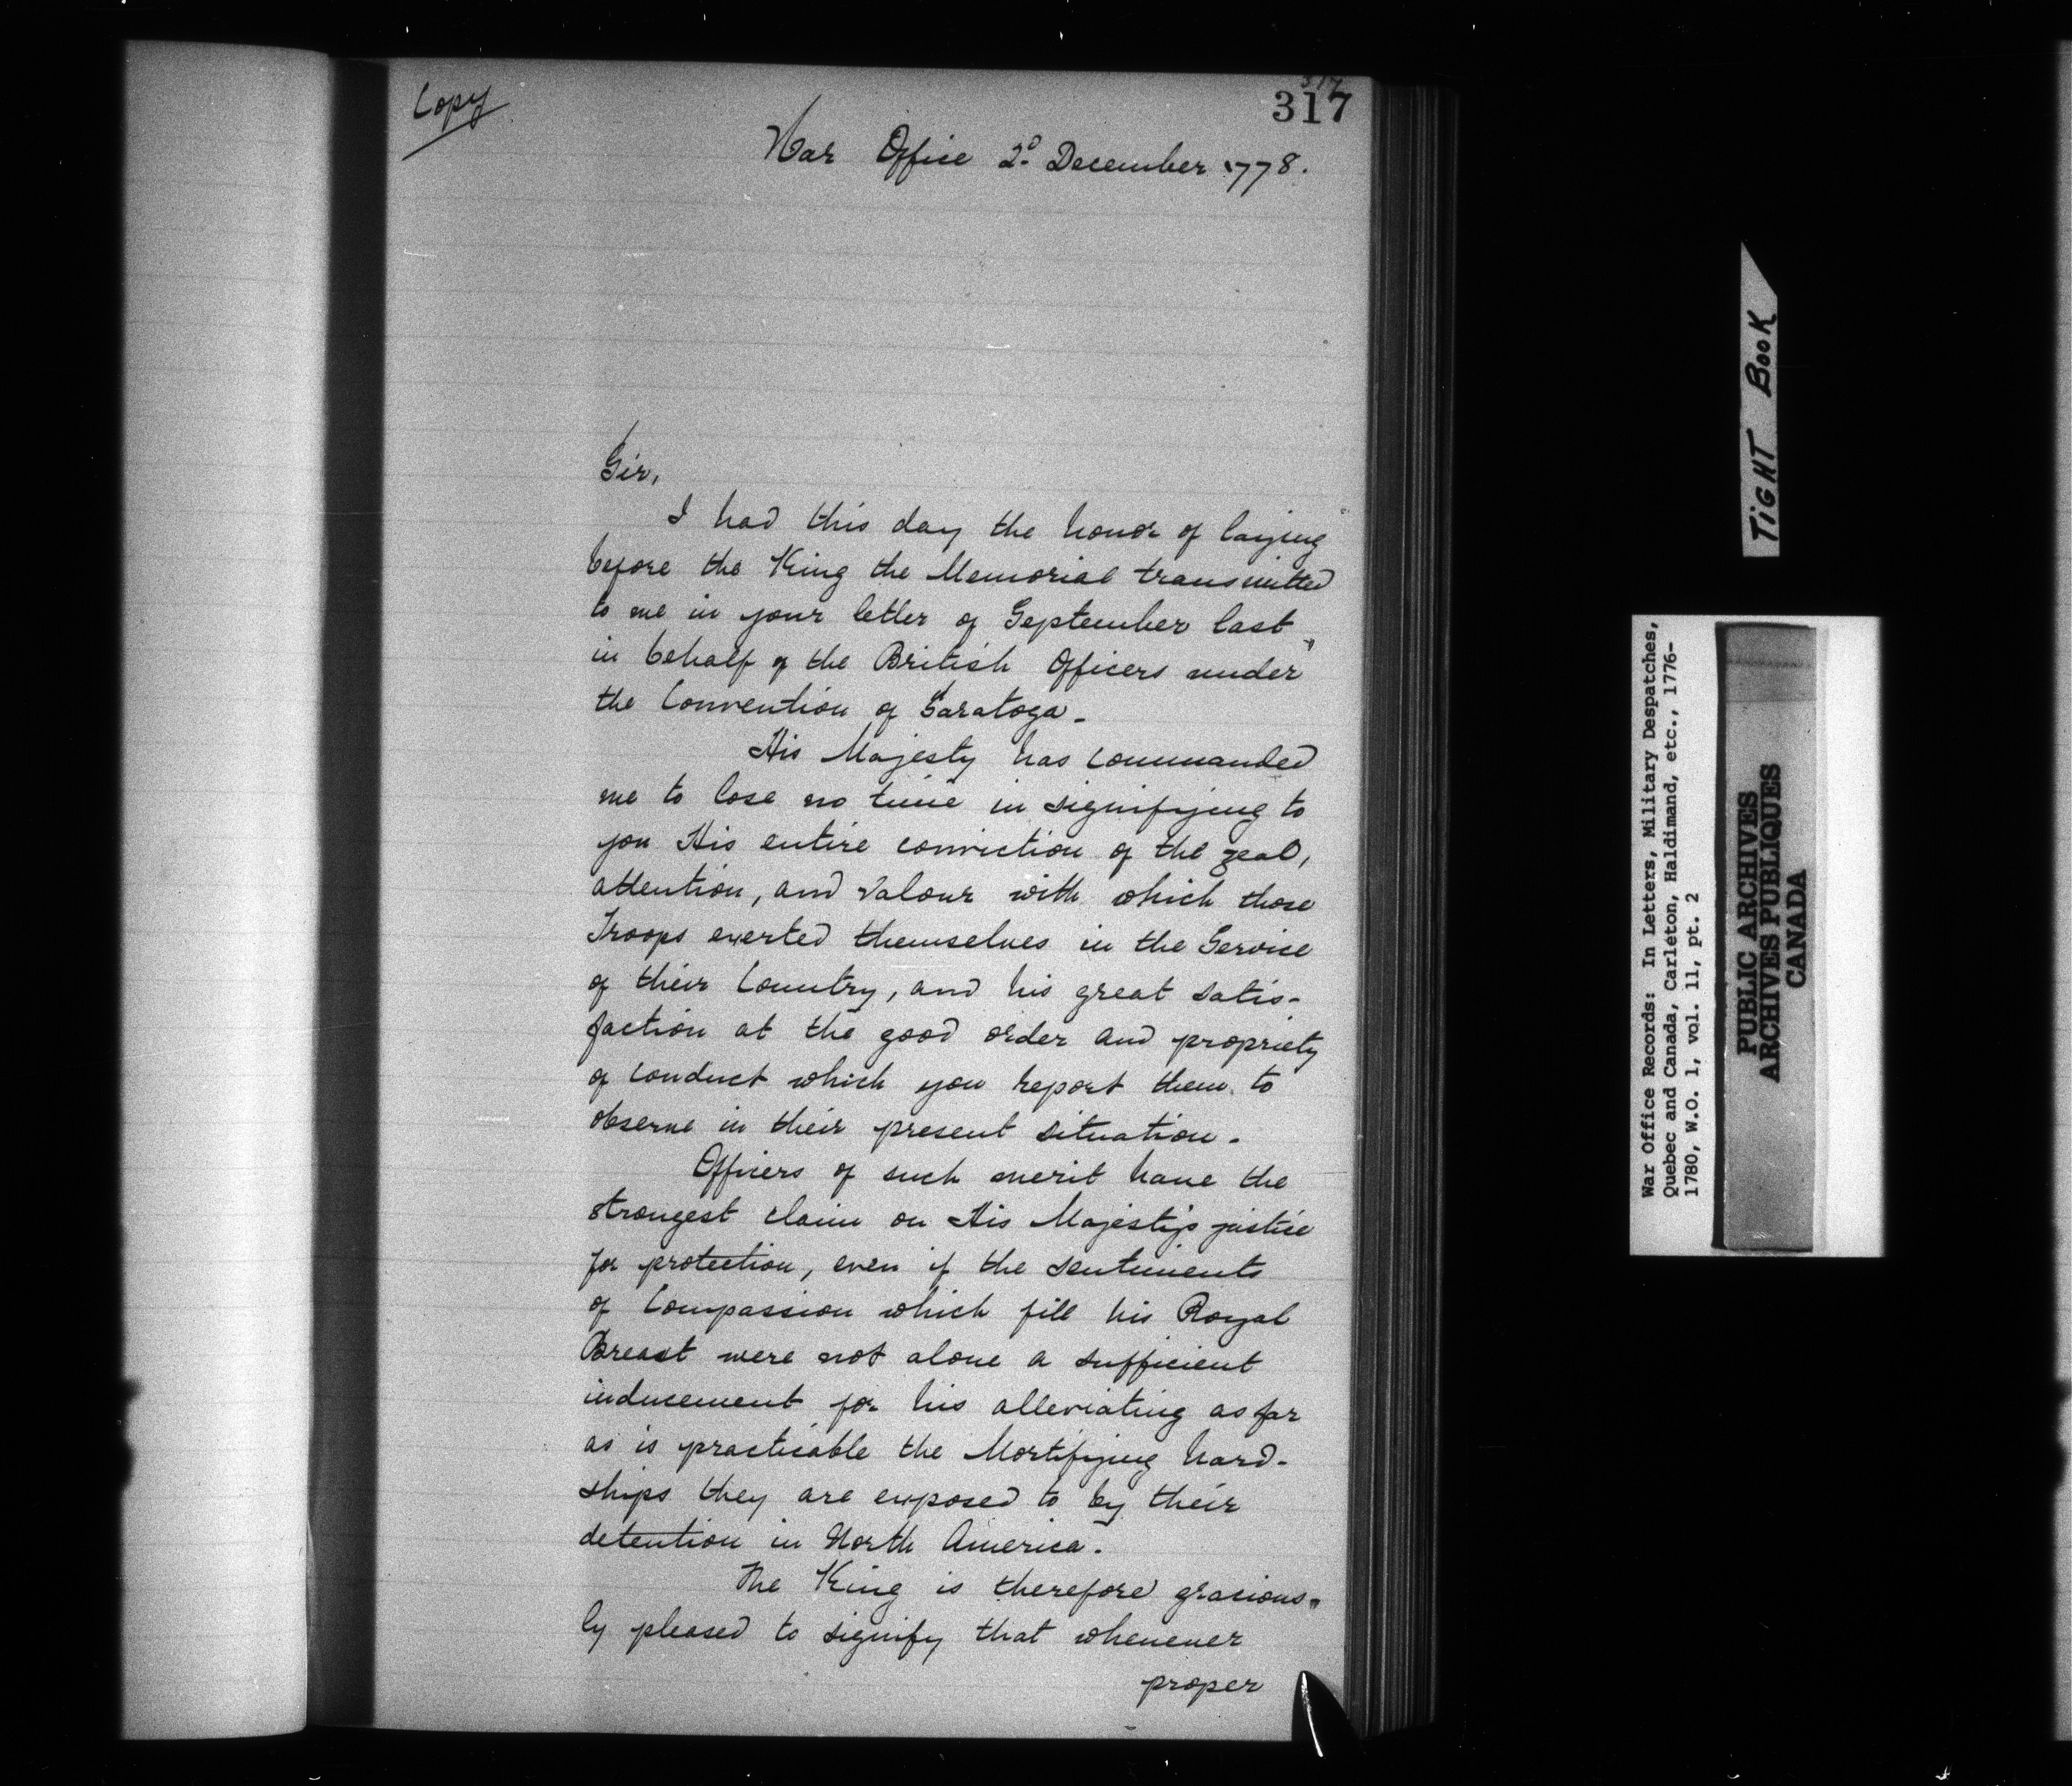 Copy
317
317
War Office 2d December 1778.
Sir,
I had this day the honor of laying
before the King the Memorial transmitted
to me in your letter of September last
in behalf of the British Officers under
the Convention of Saratoga.
His Majesty has commanded
me to lose no time in signifying to
you His entire conviction of the zeal,
attention, and valour with which those
Troops exerted themselves in the Service
of their Country, and his great satis-
faction at the good order and propriety
of conduct which you report them to
observe in their present situation.
Officers of such merit have the
strongest claim on His Majesty's justice
for protection, even if the sentiments
of Compassion which fill his Royal
Breast were not alone a sufficient
inducement for his alleviating as far
as is practicable the Mortifying hard-
ships they are exposed to by their
detention in North America.
The King is therefore gracious-
ly pleased to signify that whenever
proper
TIGHT BOOK
War Office Records: In Letters, Military Despatches,
Quebec and Canada, Carleton, Haldimand, etc., 1776-
1780, W.O. 1, vol. 11, pt. 2
PUBLIC ARCHIVES
ARCHIVES PUBLIQUES
CANADA